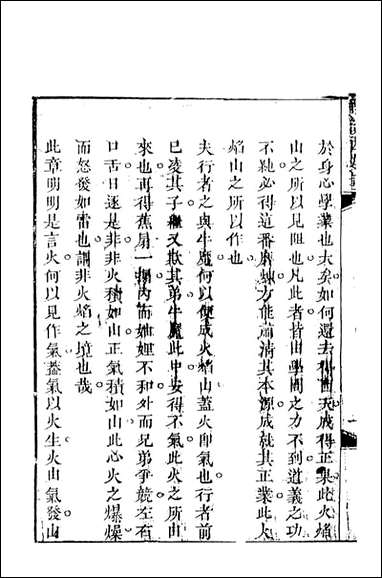 於身心學業也大矣如何還去得西天成得正果此火燄
山之所以見阻也凡此者皆由學問之力不到道義之功
不純必得這番磨煉方能肅清其本源成就其正業此火
焰山之所以作也
夫行者之與牛魔何以便成火焰山蓋火卽氣也行者前
已凌其子繼又欺其弟牛魔此中安得不氣此火之所由
來也再得蕉扇一搧內而妯娌不和外而兄弟爭競左右
口舌日逐是非非火積如山正氣積如山此心火之爆燥
而怒發如雷也謂非火焰之境也哉
此章明明是言火何以見作氣蓋氣以火生火由氣發山